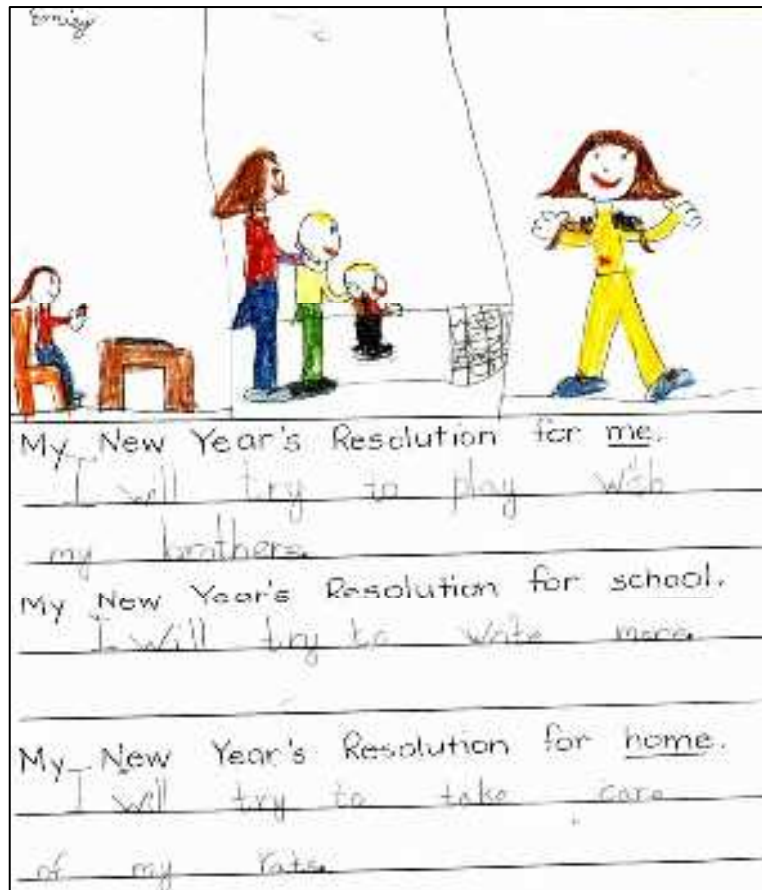 Emily
My New Year's Resolution for me.
I will try to play with
my brothers.
My New Year's Resolution for school.
I will try to write more.
My New Year's Resolution for home.
I will try to take care
of my rats.